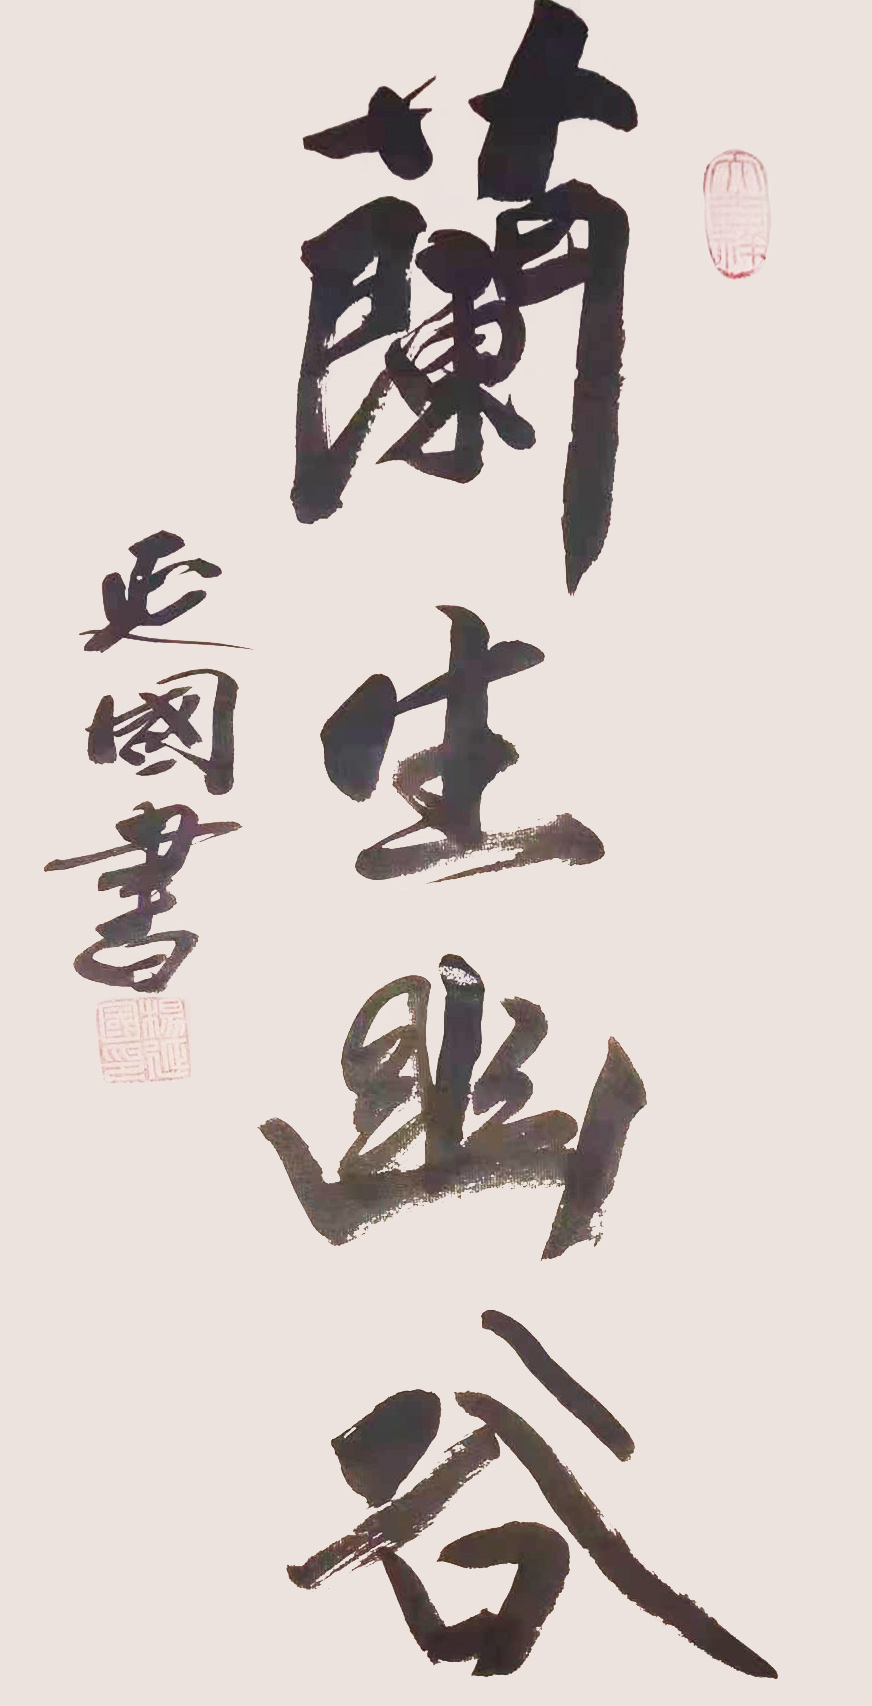 蘭生幽谷
延國書